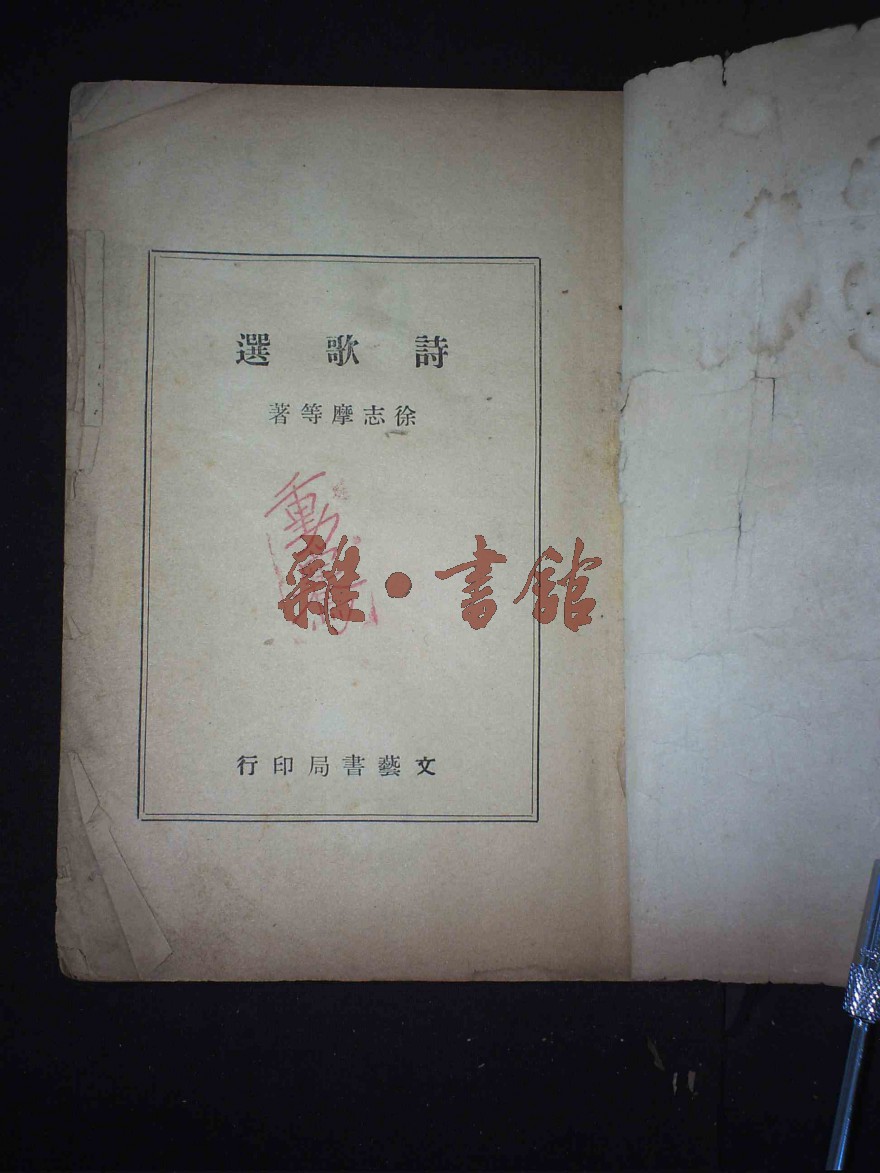 詩歌選
徐志摩等著
雜·書館
文藝書局印行